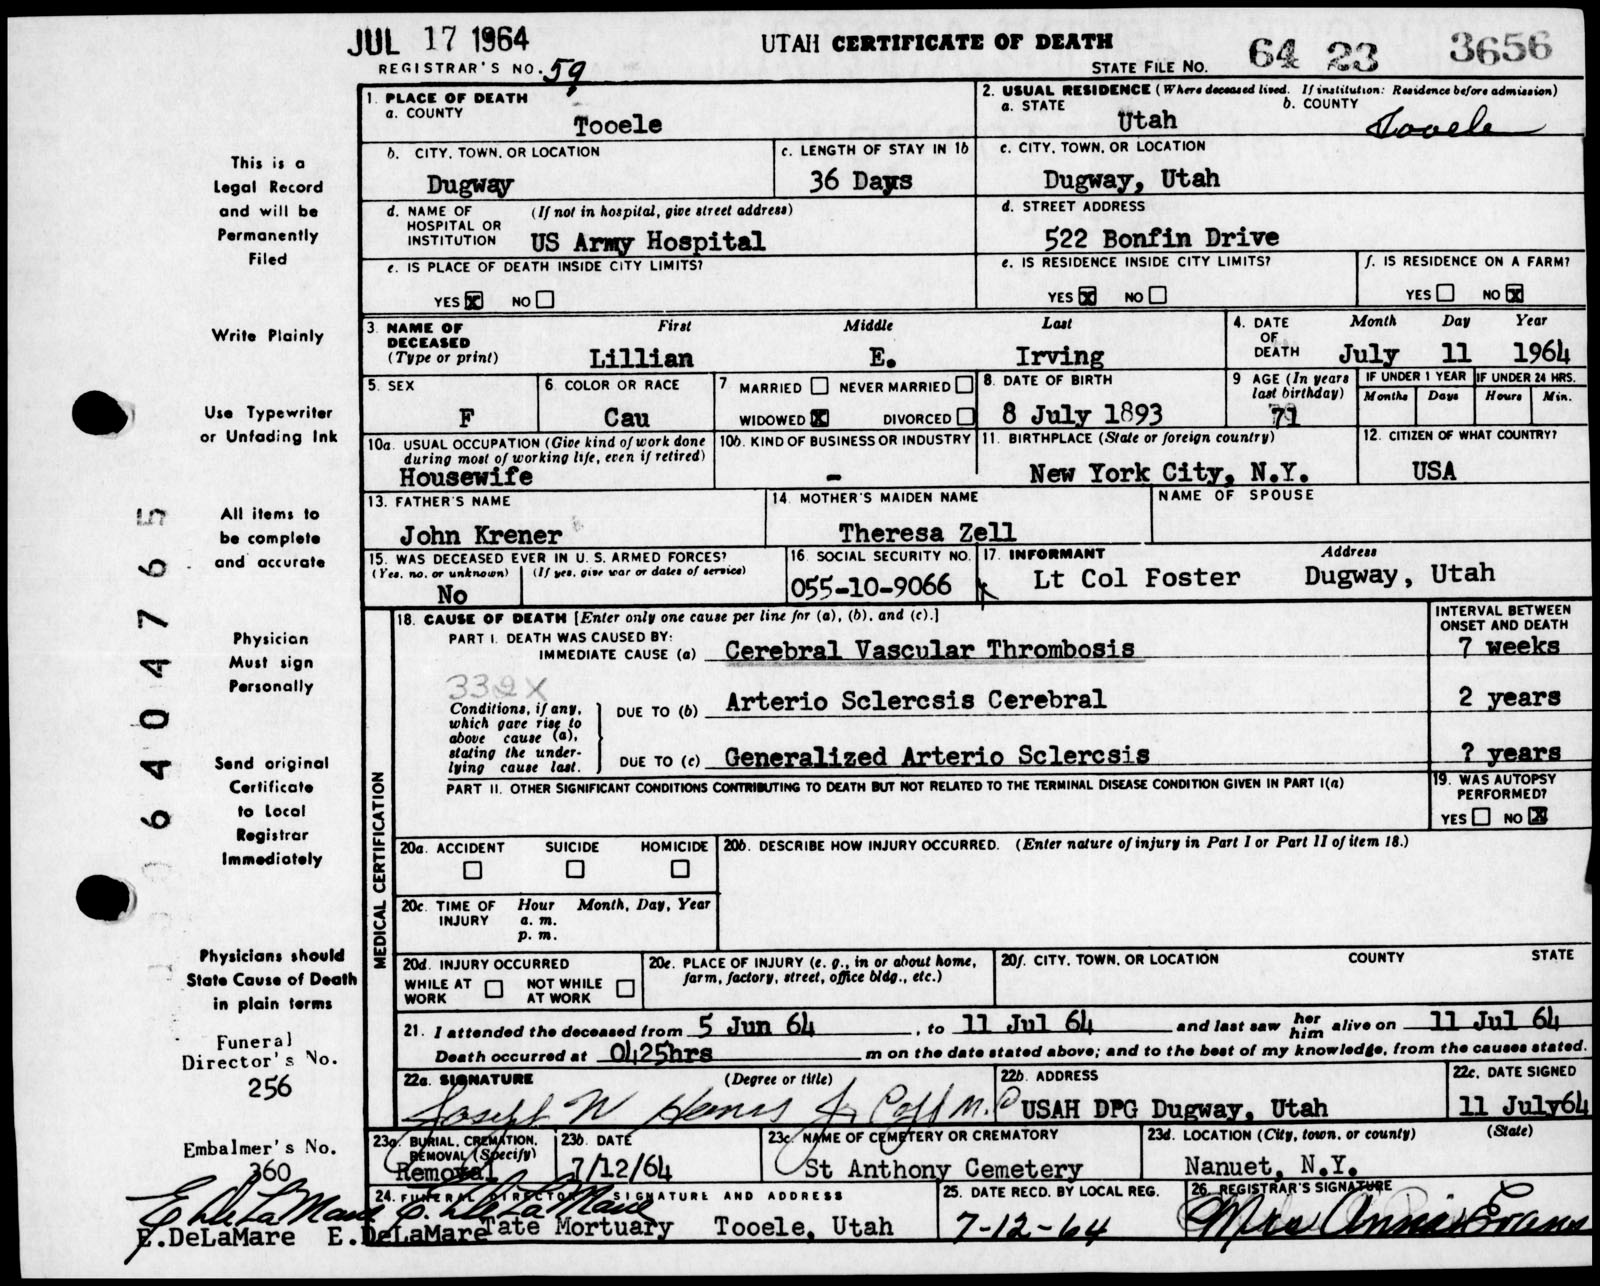 JUL 17 1964
UTAH CERTIFICATE OF DEATH
REGISTRAR'S NO. 59
STATE FILE NO. 64 23 3656
1. PLACE OF DEATH
a. COUNTY
Tooele
2. USUAL RESIDENCE (Where deceased lived. If institution: Residence before admission)
a. STATE
Utah
b. COUNTY
Tooele
b. CITY, TOWN, OR LOCATION
Dugway
c. LENGTH OF STAY IN 1b
36 Days
c. CITY, TOWN, OR LOCATION
Dugway, Utah
d. NAME OF HOSPITAL OR INSTITUTION
(If not in hospital, give street address)
US Army Hospital
d. STREET ADDRESS
522 Bonfin Drive
e. IS PLACE OF DEATH INSIDE CITY LIMITS?
YES X NO
e. IS RESIDENCE INSIDE CITY LIMITS?
YES X NO
f. IS RESIDENCE ON A FARM?
YES NO X
3. NAME OF DECEASED
(Type or print)
First Middle Last
Lillian E. Irving
4. DATE OF DEATH
Month Day Year
July 11 1964
5. SEX
F
6. COLOR OR RACE
Cau
7 MARRIED NEVER MARRIED
WIDOWED X DIVORCED
8. DATE OF BIRTH
8 July 1893
9 AGE (In years last birthday)
71
IF UNDER 1 YEAR
Months Days
IF UNDER 24 HRS.
Hours Min.
10a. USUAL OCCUPATION (Give kind of work done during most of working life, even if retired)
Housewife
10b. KIND OF BUSINESS OR INDUSTRY
-
11. BIRTHPLACE (State or foreign country)
New York City, N.Y.
12. CITIZEN OF WHAT COUNTRY?
USA
13. FATHER'S NAME
John Krener
14. MOTHER'S MAIDEN NAME
Theresa Zell
NAME OF SPOUSE
15. WAS DECEASED EVER IN U. S. ARMED FORCES?
(Yes, no, or unknown) (If yes, give war or dates of service)
No
16. SOCIAL SECURITY NO.
055-10-9066
17. INFORMANT Address
Lt Col Foster Dugway, Utah
MEDICAL CERTIFICATION
18. CAUSE OF DEATH [Enter only one cause per line for (a), (b), and (c).]
INTERVAL BETWEEN ONSET AND DEATH
PART I. DEATH WAS CAUSED BY:
IMMEDIATE CAUSE (a) Cerebral Vascular Thrombosis 7 weeks
332X
Conditions, if any, which gave rise to above cause (a), stating the underlying cause last.
DUE TO (b) Arterio Sclercsis Cerebral 2 years
DUE TO (c) Generalized Arterio Sclercsis ? years
PART II. OTHER SIGNIFICANT CONDITIONS CONTRIBUTING TO DEATH BUT NOT RELATED TO THE TERMINAL DISEASE CONDITION GIVEN IN PART I(a)
19. WAS AUTOPSY PERFORMED?
YES NO X
20a. ACCIDENT SUICIDE HOMICIDE
20b. DESCRIBE HOW INJURY OCCURRED. (Enter nature of injury in Part I or Part II of item 18.)
20c. TIME OF INJURY
Hour Month, Day, Year
a. m.
p. m.
20d. INJURY OCCURRED
WHILE AT WORK NOT WHILE AT WORK
20e. PLACE OF INJURY (e. g., in or about home, farm, factory, street, office bldg., etc.)
20f. CITY, TOWN, OR LOCATION COUNTY STATE
21. I attended the deceased from 5 Jun 64, to 11 Jul 64 and last saw her him alive on 11 Jul 64
Death occurred at 0425hrs m on the date stated above; and to the best of my knowledge, from the causes stated.
22a. SIGNATURE (Degree or title)
Joseph W Jr Capt M.C
22b. ADDRESS
USAH DPG Dugway, Utah
22c. DATE SIGNED
11 July64
23a. BURIAL, CREMATION, REMOVAL (Specify)
Removal
23b. DATE
7/12/64
23c. NAME OF CEMETERY OR CREMATORY
St Anthony Cemetery
23d. LOCATION (City, town, or county) (State)
Nanuet, N.Y.
24. FUNERAL DIRECTOR'S SIGNATURE AND ADDRESS
E DeLaMare E. DeLaMare
E.DeLaMare E.DeLaMare Tate Mortuary Tooele, Utah
25. DATE RECD. BY LOCAL REG.
7-12-64
26. REGISTRAR'S SIGNATURE
Mrs Anna Evans
This is a
Legal Record
and will be
Permanently
Filed
Write Plainly
Use Typewriter
or Unfading Ink
All items to
be complete
and accurate
Physician
Must sign
Personally
Send original
Certificate
to Local
Registrar
Immediately
Physicians should
State Cause of Death
in plain terms
Funeral
Director's No.
256
Embalmer's No.
360
64047655